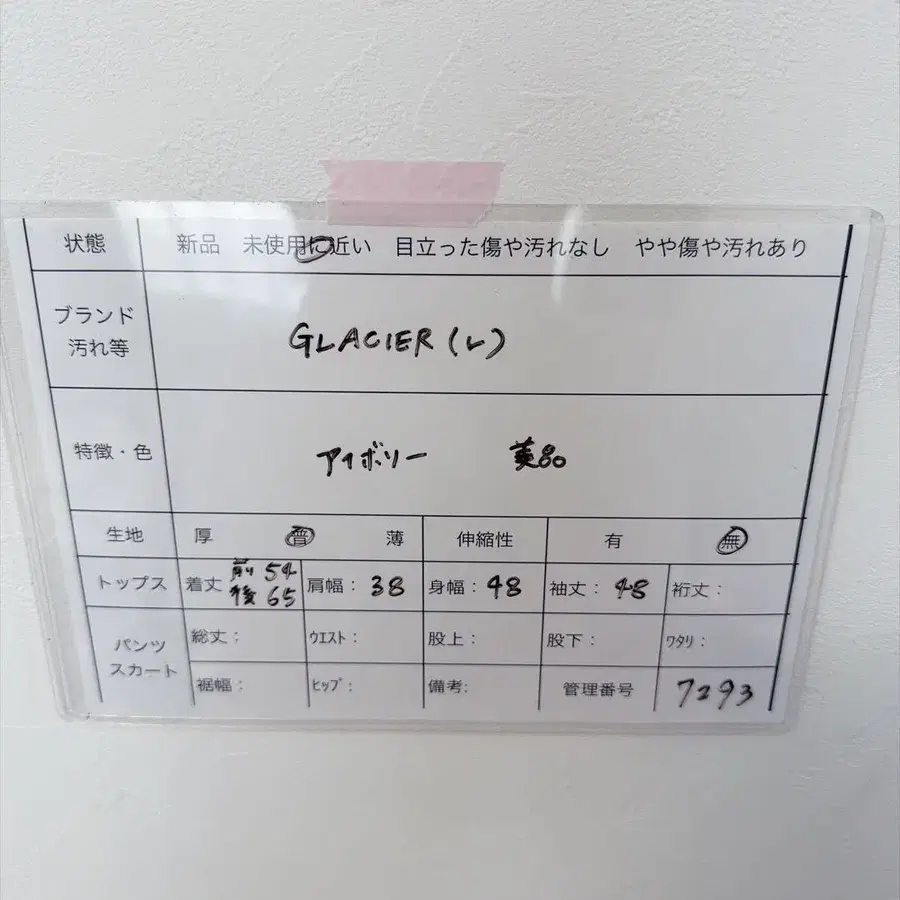 状態 新品 未使用に近い 目立った傷や汚れなし やや傷や汚れあり
ブランド
汚れ等
GLACIER (L)
特徴・色 アイボリー 美品
生地 厚 普 薄 伸縮性 有 無
トップス 着丈 前 54 後 65 肩幅: 38 身幅: 48 袖丈: 48 裄丈:
パンツ
スカート
総丈: ウエスト: 股上: 股下: ワタリ:
裾幅: ヒップ: 備考: 管理番号 7293